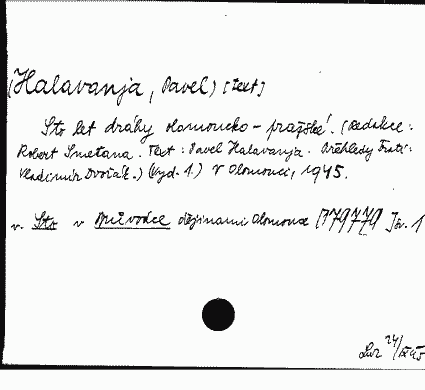 (Halavanja, Pavel) [text]
Sto let dráhy olomoucko-pražské. (Redakce:
Robert Smetana. Text: Pavel Halavanja. Přehledy
Vladimír Dvořák.) (Vyd. 1.) V Olomouci, 1945.
v. Sto v Průvodce dějinami Olomouce